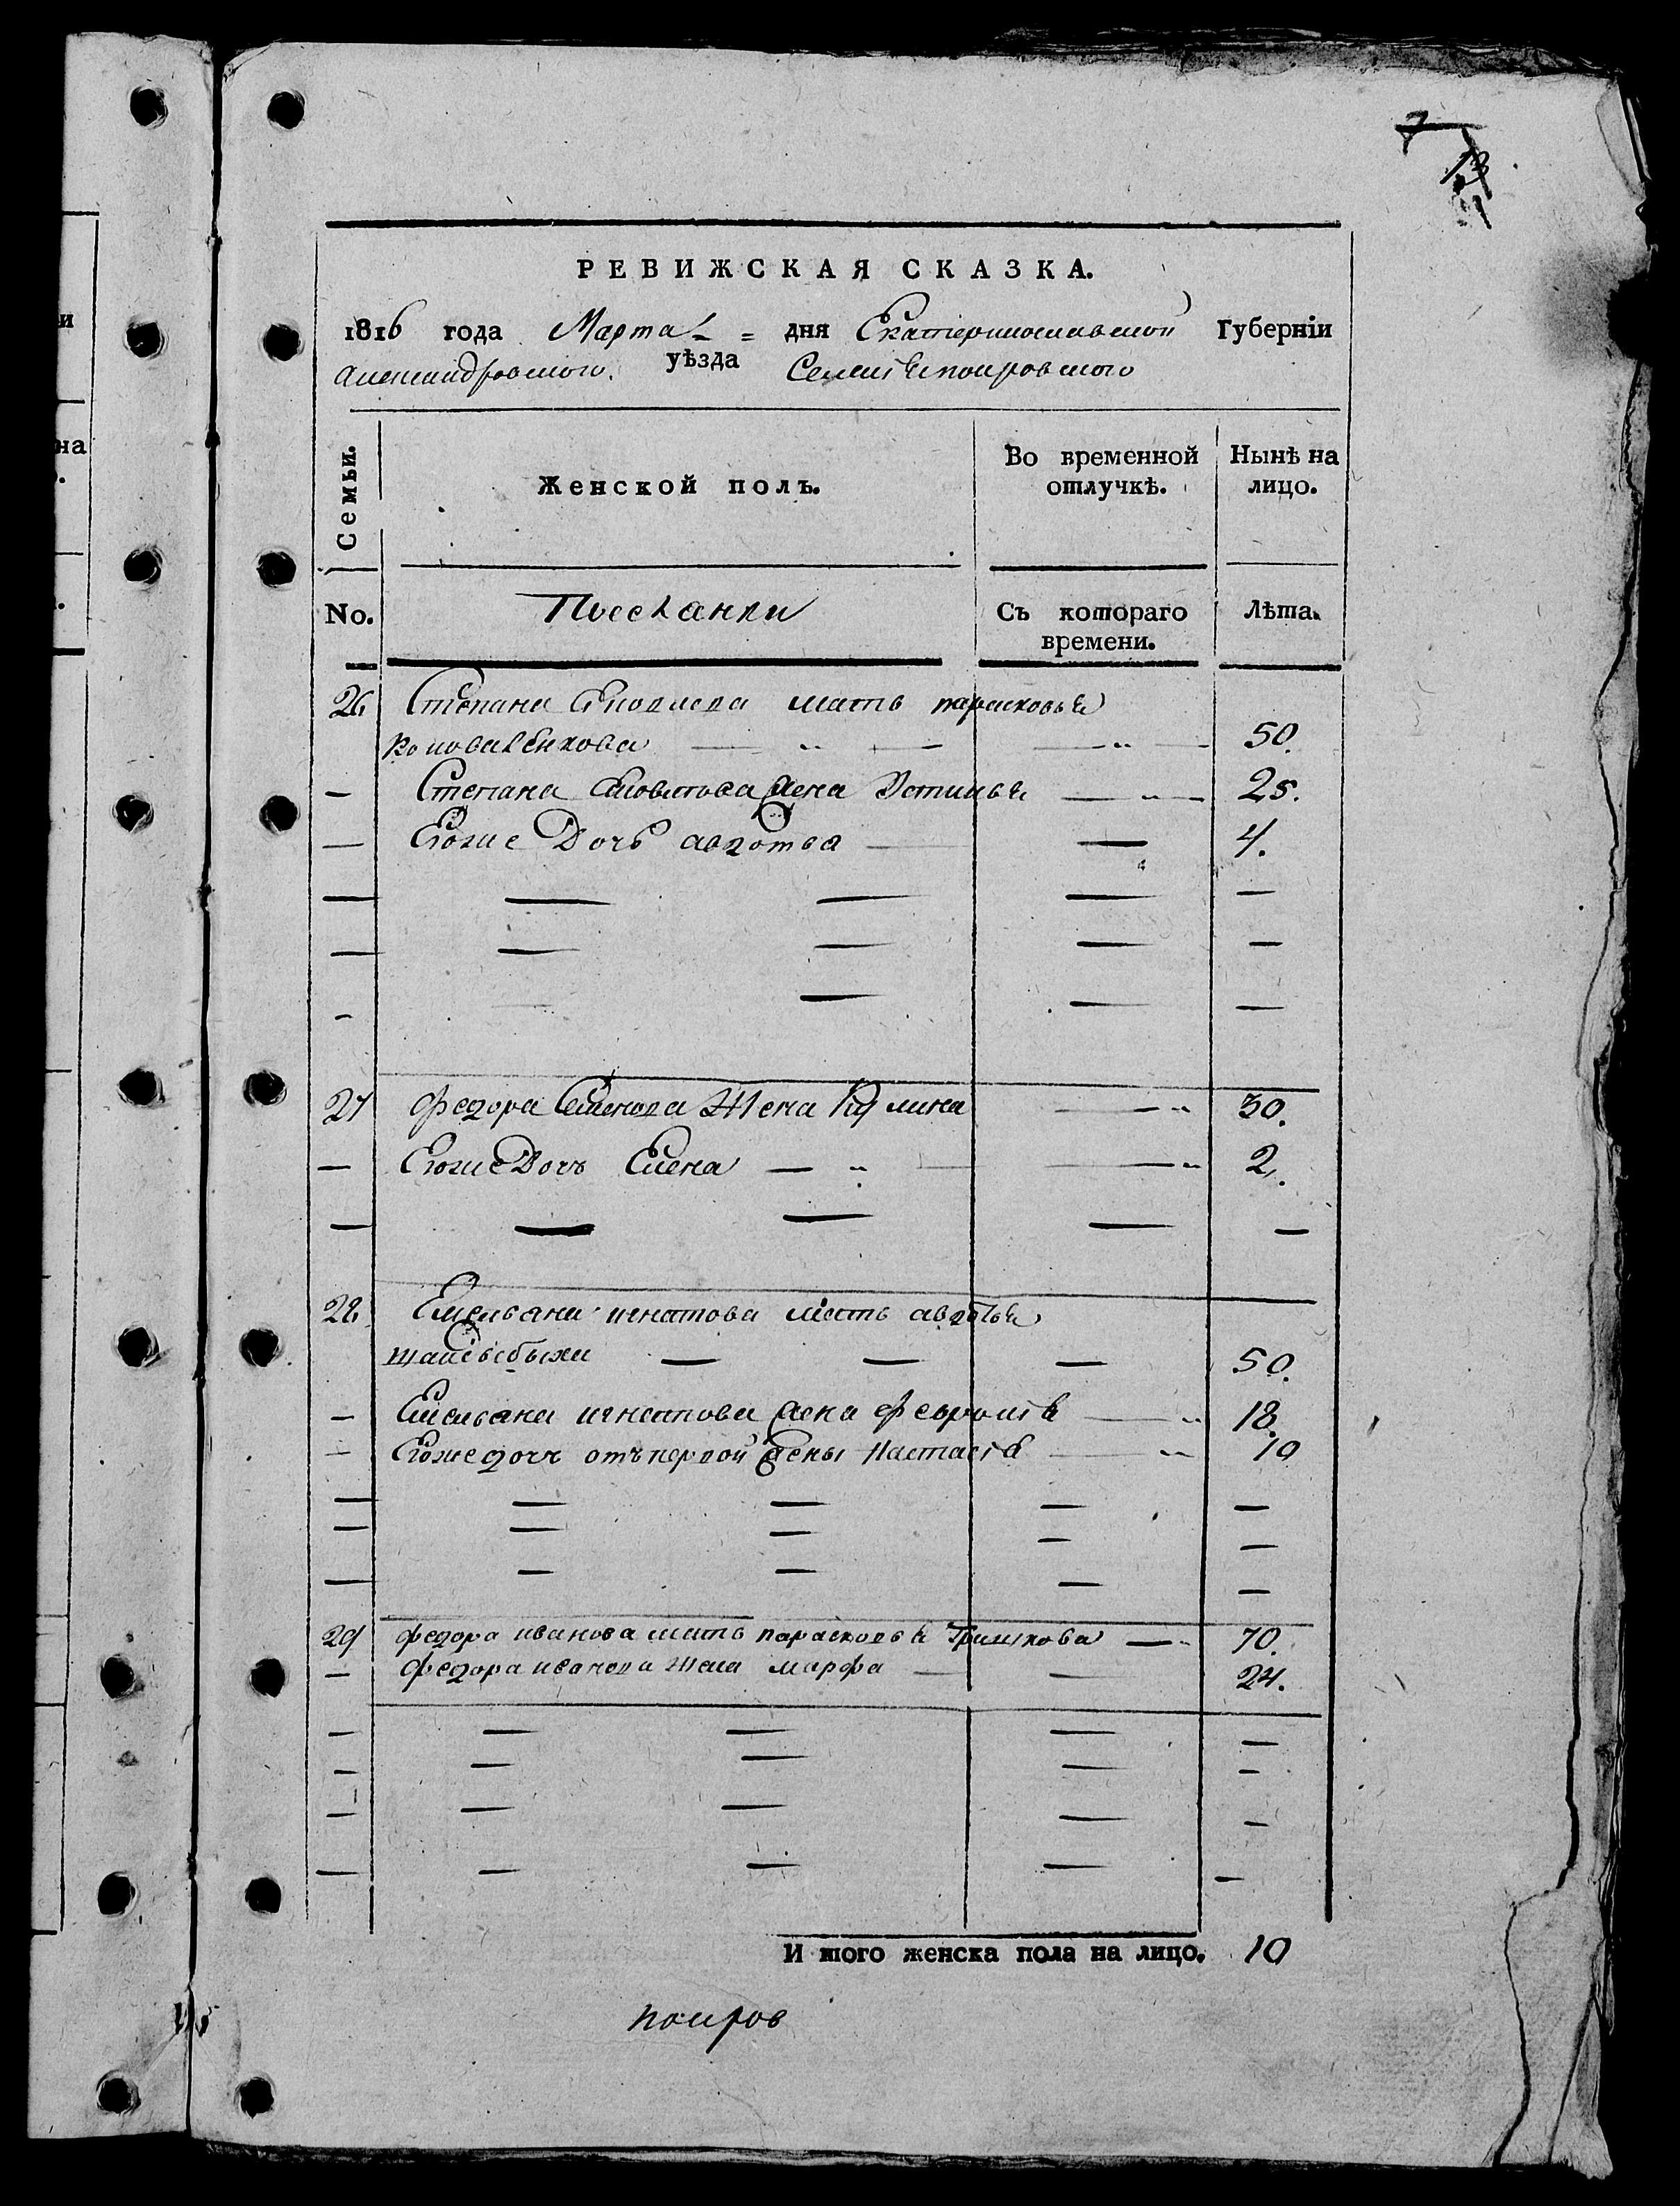 РЕВИЖСКАЯ СКАЗКА.
1816 года Марта = дня Екатеринославской Губерніи
Александровского уѣзда Селенія покровского
Семьи.
Женской полъ.
Во временной отлучкѣ.
Нынѣ на лицо.
No.
Съ котораго времени.
Лѣта.
26 Степана мать парасковья
50.
— Степана жена Устинья — „ — 25.
— Егоже Дочь авдотья — — 4.
27 федора Семенова Жена Акулина — „ 30.
— Егоже Дочь Елена — „ — — „ 2.
28 Емельяна игнатова мать авдотья
— — — 50.
— Емельяна игнатова жена феврония — „ 18.
— Егоже дочь отъ первой жены Настасія — „ 10
29 федора иванова мать парасковья — 70.
— федора иванова жена марфа — — 24.
И того женска пола на лицо. 10
на